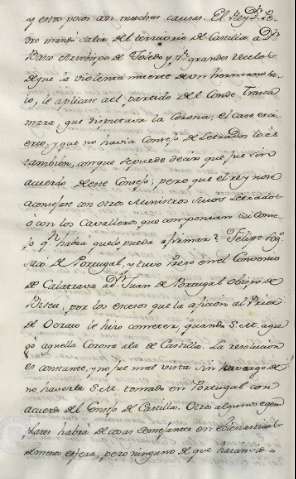 y esto paso con muchas causas. El Rey Dn. Pe-
dro mandó salir del territorio de Castilla a Dn.
Arzobispo de Toledo, y grandes recelos
de que la violenta muerte de un hermano su-
yo, le aplicase al partido del Conde Trasta-
mara, que disputava la Corona; el caso era
cierto, y que no havia Consejo de Letrados lo es
tambien, con que se puede decir que fue sin
acuerdo de este Consejo; pero que el rey no se
aconsejase con otros Ministros suyos Letrados
ò con los Cavalleros que componian su Conse-
jo, que habra quien lo pueda afirmar? Felipe Seg.
sacò de Portugal, y tuvo Preso en el Convento
de Calatrava a Dn. Juan de Portugal obispo de
por los excesos que la aficion al Prior
de Ocrato le hizo cometer, quando S. M. agre-
gò aquella Corona à la de Castilla. La resolucion
es constante, y no fue mal vista sin embargo de
no haverla S. M. tomado en Portugal con
acuerdo del Consejo de Castilla. Otros algunos egem-
plares habra de cosas semejantes en
misma esfera, pero ninguno de que haran